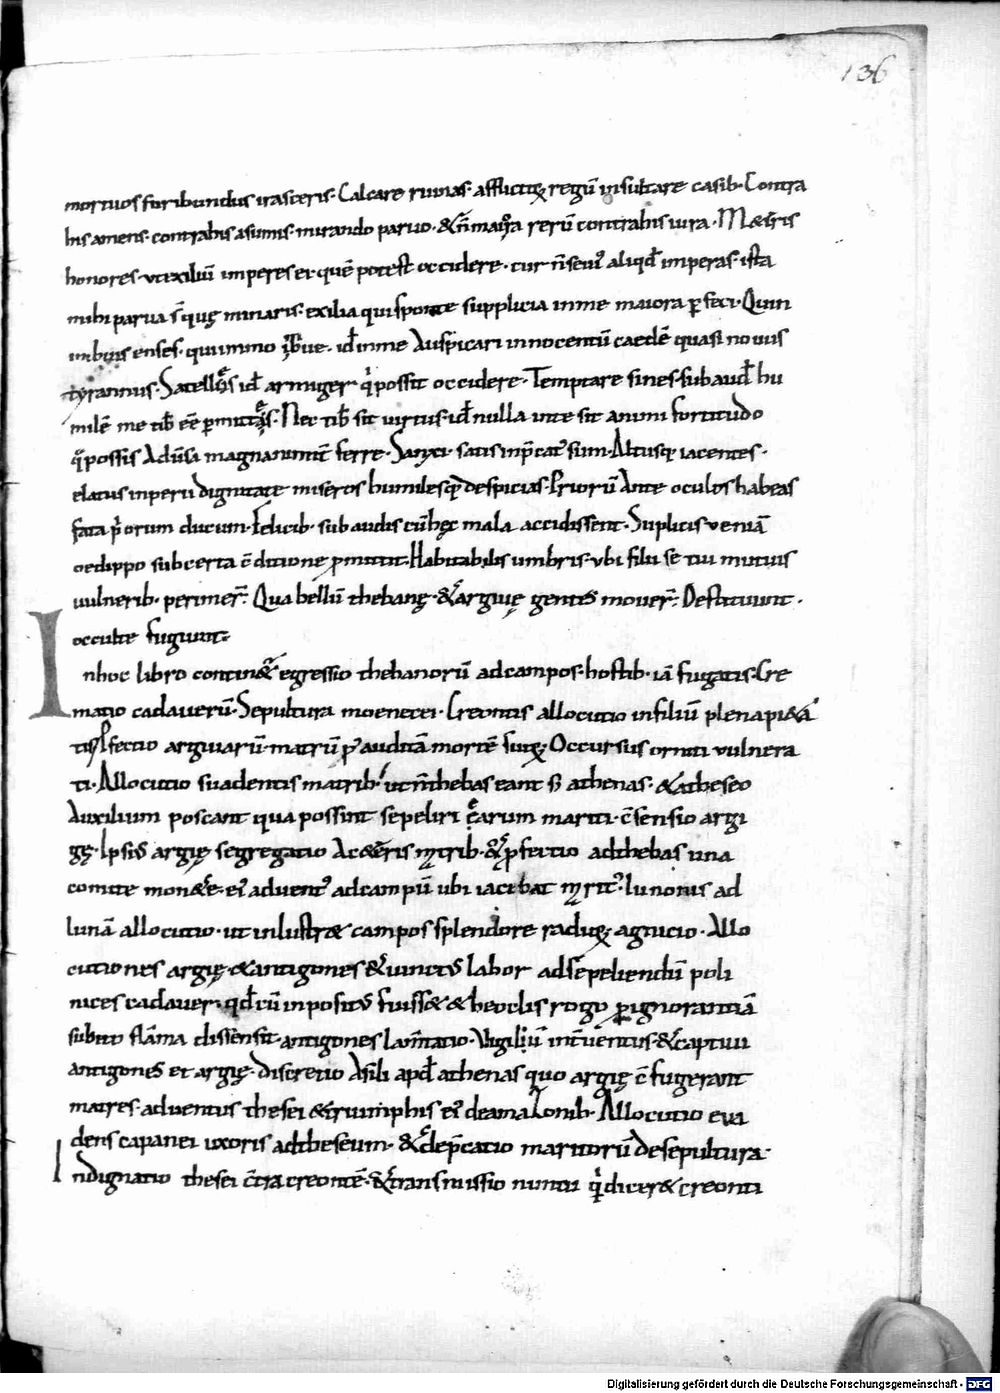 136
mortuos furibundus irasceris. Calcare ruinas. afflictaꝝ regū insultare casib· Contra
his amens. contrahis asumis. mirando paruo. & n̄ maiora rerū contrahis iura.
honores. ut exiliū imperes et quē potest occidere. cur n̄ imperas. ista
mihi parua minaris. exilia qui sponte supplicia in me maiora ꝑfeci. Quin
imbuis enses. quin immo id ē in me Auspicari innocentū caedē quasi nouus
tyrannus. Satellēs id armiger qͥ possit occidere. Temptare sines. subaud̄ hu
milē me tib̄ eē ꝑmittas. Nec tib̄ sit uirtus. id nulla in te sit animi fortitudo
possis Aduersa magnanimit̄ ferre. Sanxi. satis sum. Altusq; iacentes.
elatus in perii dignitate miseros humilesq; despicias. Priorū Ante oculos habeas
fata pͥorum ducum. Felicib· subaudis cū hęc mala accidissent. Suplicis ueniā
oedippo sub certa c̄ditione ꝑmittit. Habitabilis umbris. ubi filii se tui mutuis
uulnerib· perimer̄. Qua bellū thebanę. & argiuę gentes mouer̄. Destituunt.
occulte fugiunt.
In hoc libro continet̄ egressio thebanorū ad campos. hostib· iā fugatis. Cre
matio cadauerū. Sepultura moenecei. Creontis allocutio in filiū plena pieta
tis. ꝓfectio argiuarū matrū ꝑ auditā mortē suoꝝ. Occursus orniti uulnera
ti. Allocutio suadentis matrib· ut n̄ thebas eant s; athenas. & a theseo
Auxilium poscant qua possint sepeliri earum mariti. c̄sensio argi
gę. Ipsiꝰ argię segregatio Ac &eris mtrib· & ꝓfectio ad thebas una
comite monete. eiꝰ aduentꝰ ad campū ubi iacebat maritꝰ. Iunonis ad
lunā allocutio. ut inlustr& campos splendore radioꝝ. agnicio. Allo
cutiones argię. & antigones & iunctꝰ labor ad sepeliendū poli
nices cadauer. qd̄ cū inpositū fuiss& &heoclis rogo ꝑ ignorantiā
subito flāma dissensit. antigones lam̄tatio. Vigiliū int̄uentus. & captiui
antigones et argię. Discretio Asili apd̄ athenas quo argię c̄fugerant
matres. aduentus thesei & triumphis eiꝰ de amazonib· Allocutio eva
dens capanei uxoris ad theseum. & dep̄catio maritorū de sepultura.
Indignatio thesei c̄tra creontē. & transmissio nuntii qͥ dicer& creonti
Digitalisierung gefördert durch die Deutsche Forschungsgemeinschaft - DFG